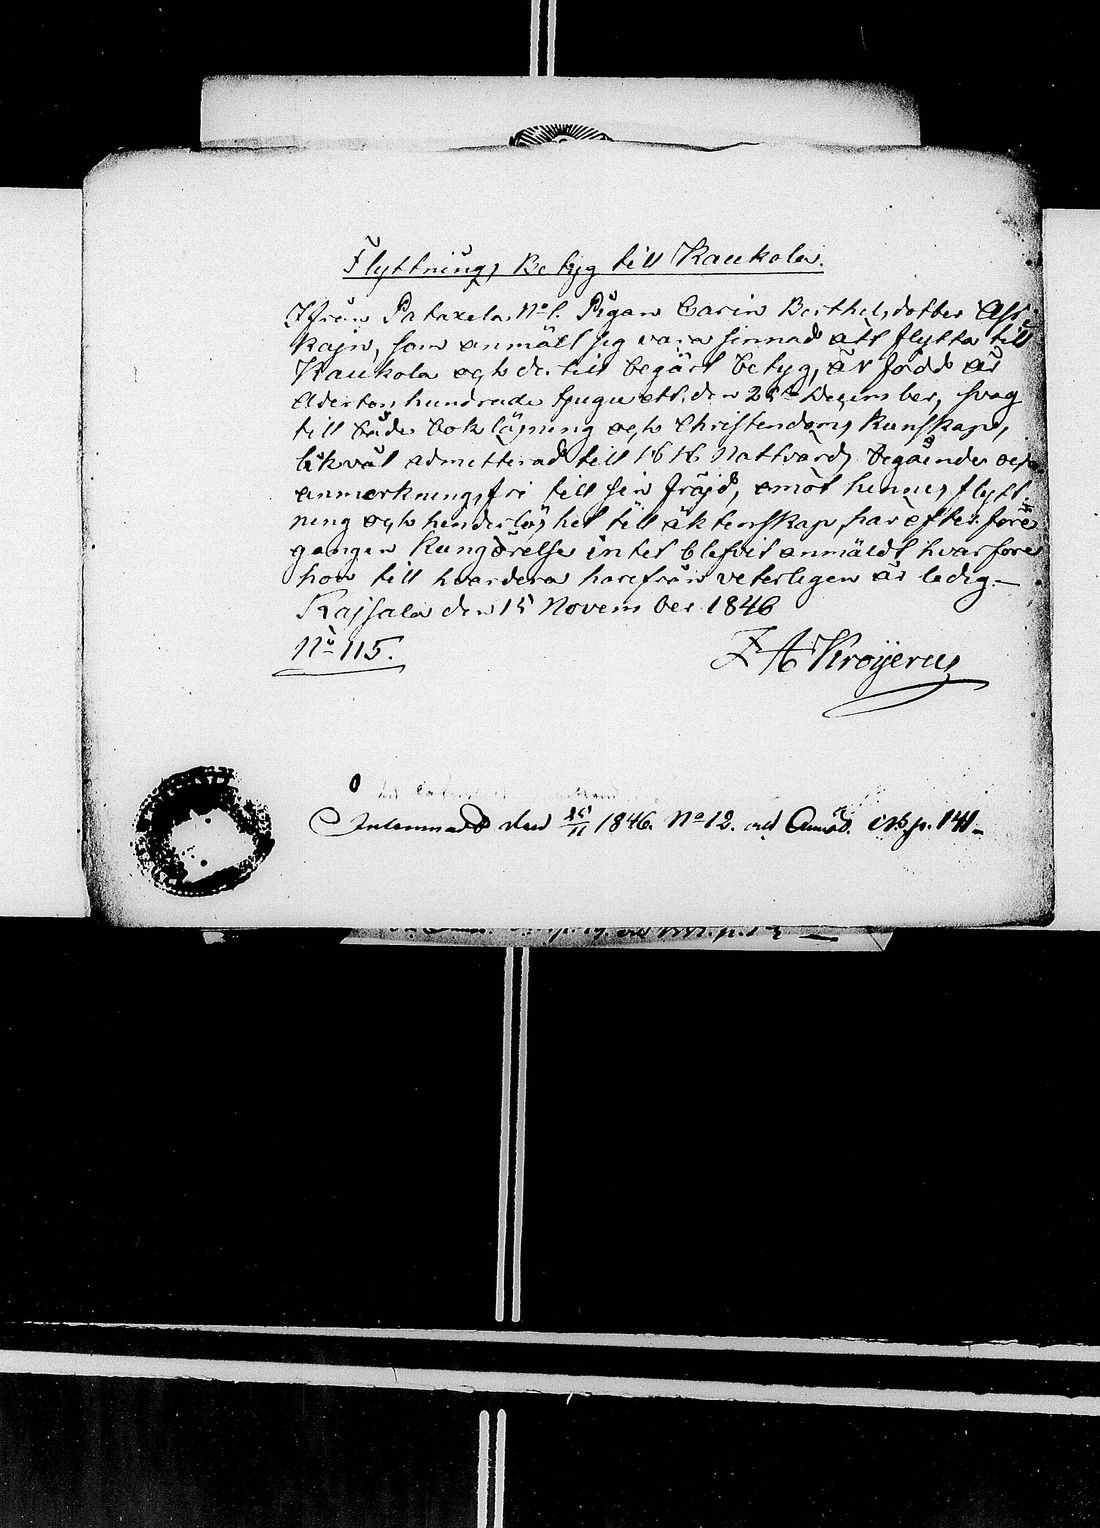 Flyttnings Betyg till Kaukola.
Ifrån Pataxela No Pigan Carin Berthelsdotter
kain, som anmält sig vara sinnad att flytta till
Kaukola och dertill begärt betyg, är född år
Adertonhundrade tjuguett, den 25te December, svag
till både bokläsning och Christendoms kunskap,
likväl admitterad till Nattvards begående och
anmerkningsfri till sin fräjd, emot hennes flytt-
ning och hinderlöshet till äktenskap, har efter före
gången Kungörelse intet blefvit anmäldt hvarföre
hon till hvardera härifrån veterligen är ledig.—
Rajsala den 15 November 1846
No 115.
F A Kroijerus
Inlemnad den 25/11 1846. No 12. p. 141.